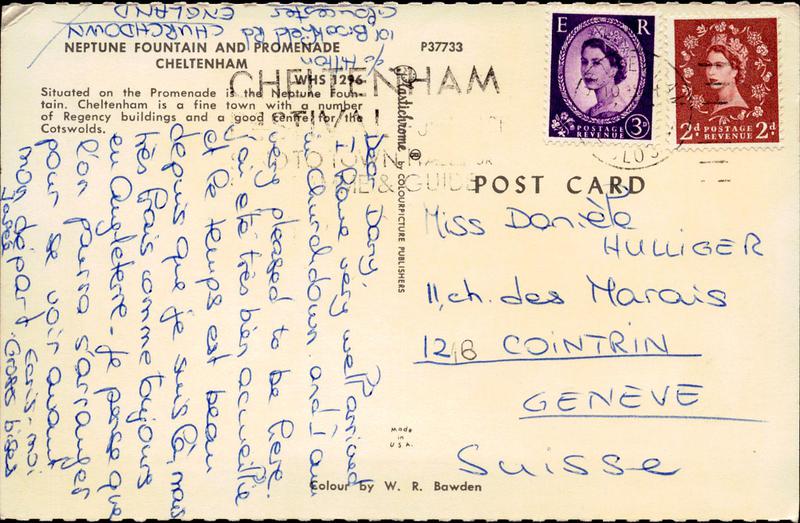 101 Brookfield Rd
CHURCHDOWN
Gloucester
ENGLAND
NEPTUNE FOUNTAIN AND PROMENADE
CHELTENHAM
P37733
WHS 1296
Situated on the Promenade is the Neptune Foun-
tain. Cheltenham is a fine town with a number
of Regency buildings and a good centre for the
Cotswolds.
CHELTENHAM
FESTIVAL
TOWN HALL
& GUIDE
Plastichrome ® by COLOURPICTURE PUBLISHERS
E R
POSTAGE
REVENUE
3D
2D POSTAGE REVENUE 2D
POST CARD
Dear Dany,
I have very well arrived
in Churchdown and I am
very pleased to be here.
J'ai été très bien accueillie
et le temps est beau
depuis que je suis là, mais
très frais comme toujours
en Angleterre. Je pense que
l'on pourra s'arranger
pour se voir avant
mon départ. Ecris-moi
Grosses bises
Miss Danièle
HULLIGER
11, ch. des Marais
1216 COINTRIN
GENEVE
Suisse
Made
in
U.S.A.
Colour by W. R. Bawden